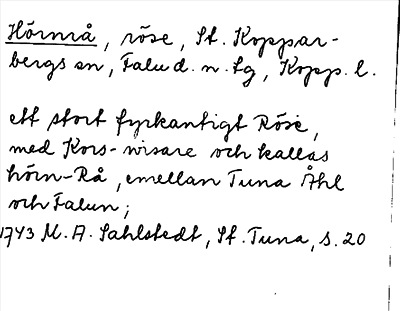 Hörnrå, röse, St. Koppar-
bergs sn, Falu d. n. tg, Kopp. l.
ett stort fyrkantigt Röse,
med Kors-wisare och kallas
hörn-Rå, emellan Tuna Åhl
och Falun;
1743 M. A. Sahlstedt, St. Tuna, s. 20